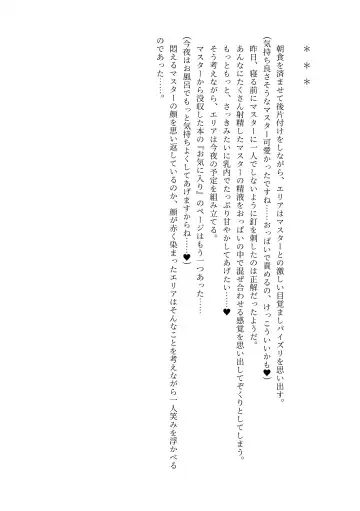 ＊　＊　＊
朝食を済ませて後片付けをしながら、エリアはマスターとの激しい目覚ましパイズリを思い出す。
(気持ち良さそうなマスター可愛かったですね……おっぱいで責めるの、けっこういいかも♥)
昨日、寝る前にマスターに一人でしないように釘を刺したのは正解だったようだ。
あんなにたくさん射精したマスターの精液をおっぱいの中で混ぜ合わせる感覚を思い出してぞくりとしてしまう。
もっともっと、さっきみたいに乳内でたっぷり甘やかしてあげたい……♥
そう考えながら、エリアは今夜の予定を組み立てる。
マスターから没収した本の『お気に入り』のページはもう一つあった……
(今夜はお風呂でもっと気持ちよくしてあげますからね……♥)
悶えるマスターの顔を思い返しているのか、顔が赤く染まったエリアはそんなことを考えながら一人笑みを浮かべる
のであった……。